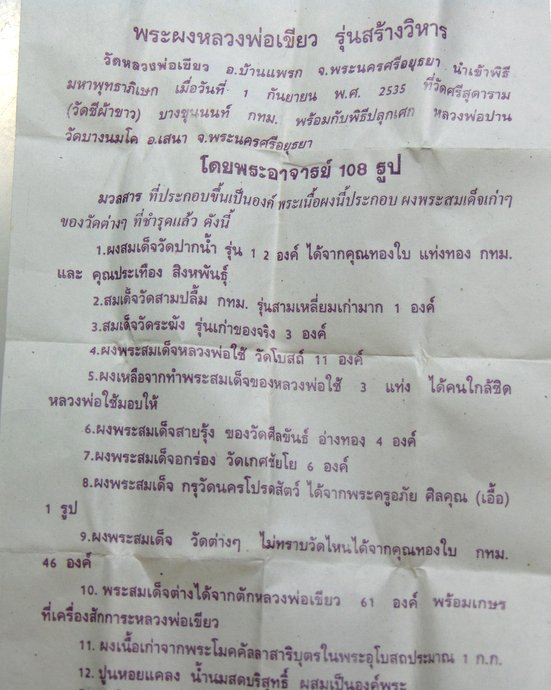 พระผงหลวงพ่อเขียว รุ่นสร้างวิหาร
วัดหลวงพ่อเขียว อ.บ้านแพรก จ.พระนครศรีอยุธยา นำเข้าพิธี
มหาพุทธาภิเษก เมื่อวันที่ 1 กันยายน พ.ศ. 2535 ที่วัดศรีสุดาราม
(วัดชีผ้าขาว) บางขุนนนท์ กทม. พร้อมกับพิธีปลุกเศก หลวงพ่อปาน
วัดบางนมโค อ.เสนา จ.พระนครศรีอยุธยา
โดยพระอาจารย์ 108 รูป
มวลสาร ที่ประกอบขึ้นเป็นองค์ พระเนื้อผงนี้ประกอบ ผงพระสมเด็จเก่าๆ
ของวัดต่างๆ ที่ชำรุดแล้ว ดังนี้
1.ผงสมเด็จวัดปากน้ำ รุ่น 1 2 องค์ ได้จากคุณทองใบ แท่งทอง กทม.
และ คุณประเทือง สิงหพันธุ์
2.สมเด็จวัดสามปลื้ม กทม. รุ่นสามเหลี่ยมเก่ามาก 1 องค์
3.สมเด็จวัดระฆัง รุ่นเก่าของจริง 3 องค์
4.ผงพระสมเด็จหลวงพ่อใช้ วัดโบสถ์ 11 องค์
5.ผงเหลือจากทำพระสมเด็จของหลวงพ่อใช้ 3 แท่ง ได้คนใกล้ชิด
หลวงพ่อใช้มอบให้
6.ผงพระสมเด็จสายรุ้ง ของวัดศีลขันธ์ อ่างทอง 4 องค์
7.ผงพระสมเด็จอกร่อง วัดเกศชัยโย 6 องค์
8.ผงพระสมเด็จ กรุวัดนครโปรดสัตว์ ได้จากพระครูอภัย ศิลคุณ (เอื้อ)
1 รูป
9.ผงพระสมเด็จ วัดต่างๆ ไม่ทราบวัดไหนได้จากคุณทองใบ กทม.
46 องค์
10. พระสมเด็จต่างได้จากตักหลวงพ่อเขียว 61 องค์ พร้อมเกษร
ที่เครื่องสักการะหลวงพ่อเขียว
11. ผงเนื้อเก่าจากพระโมคคัลลาสาริบุตรในพระอุโบสถประมาณ 1 ก.ก.
12. ปูนหอยแคลง น้ำนมสดบริสุทธิ์ ผสมเป็นองค์พระ